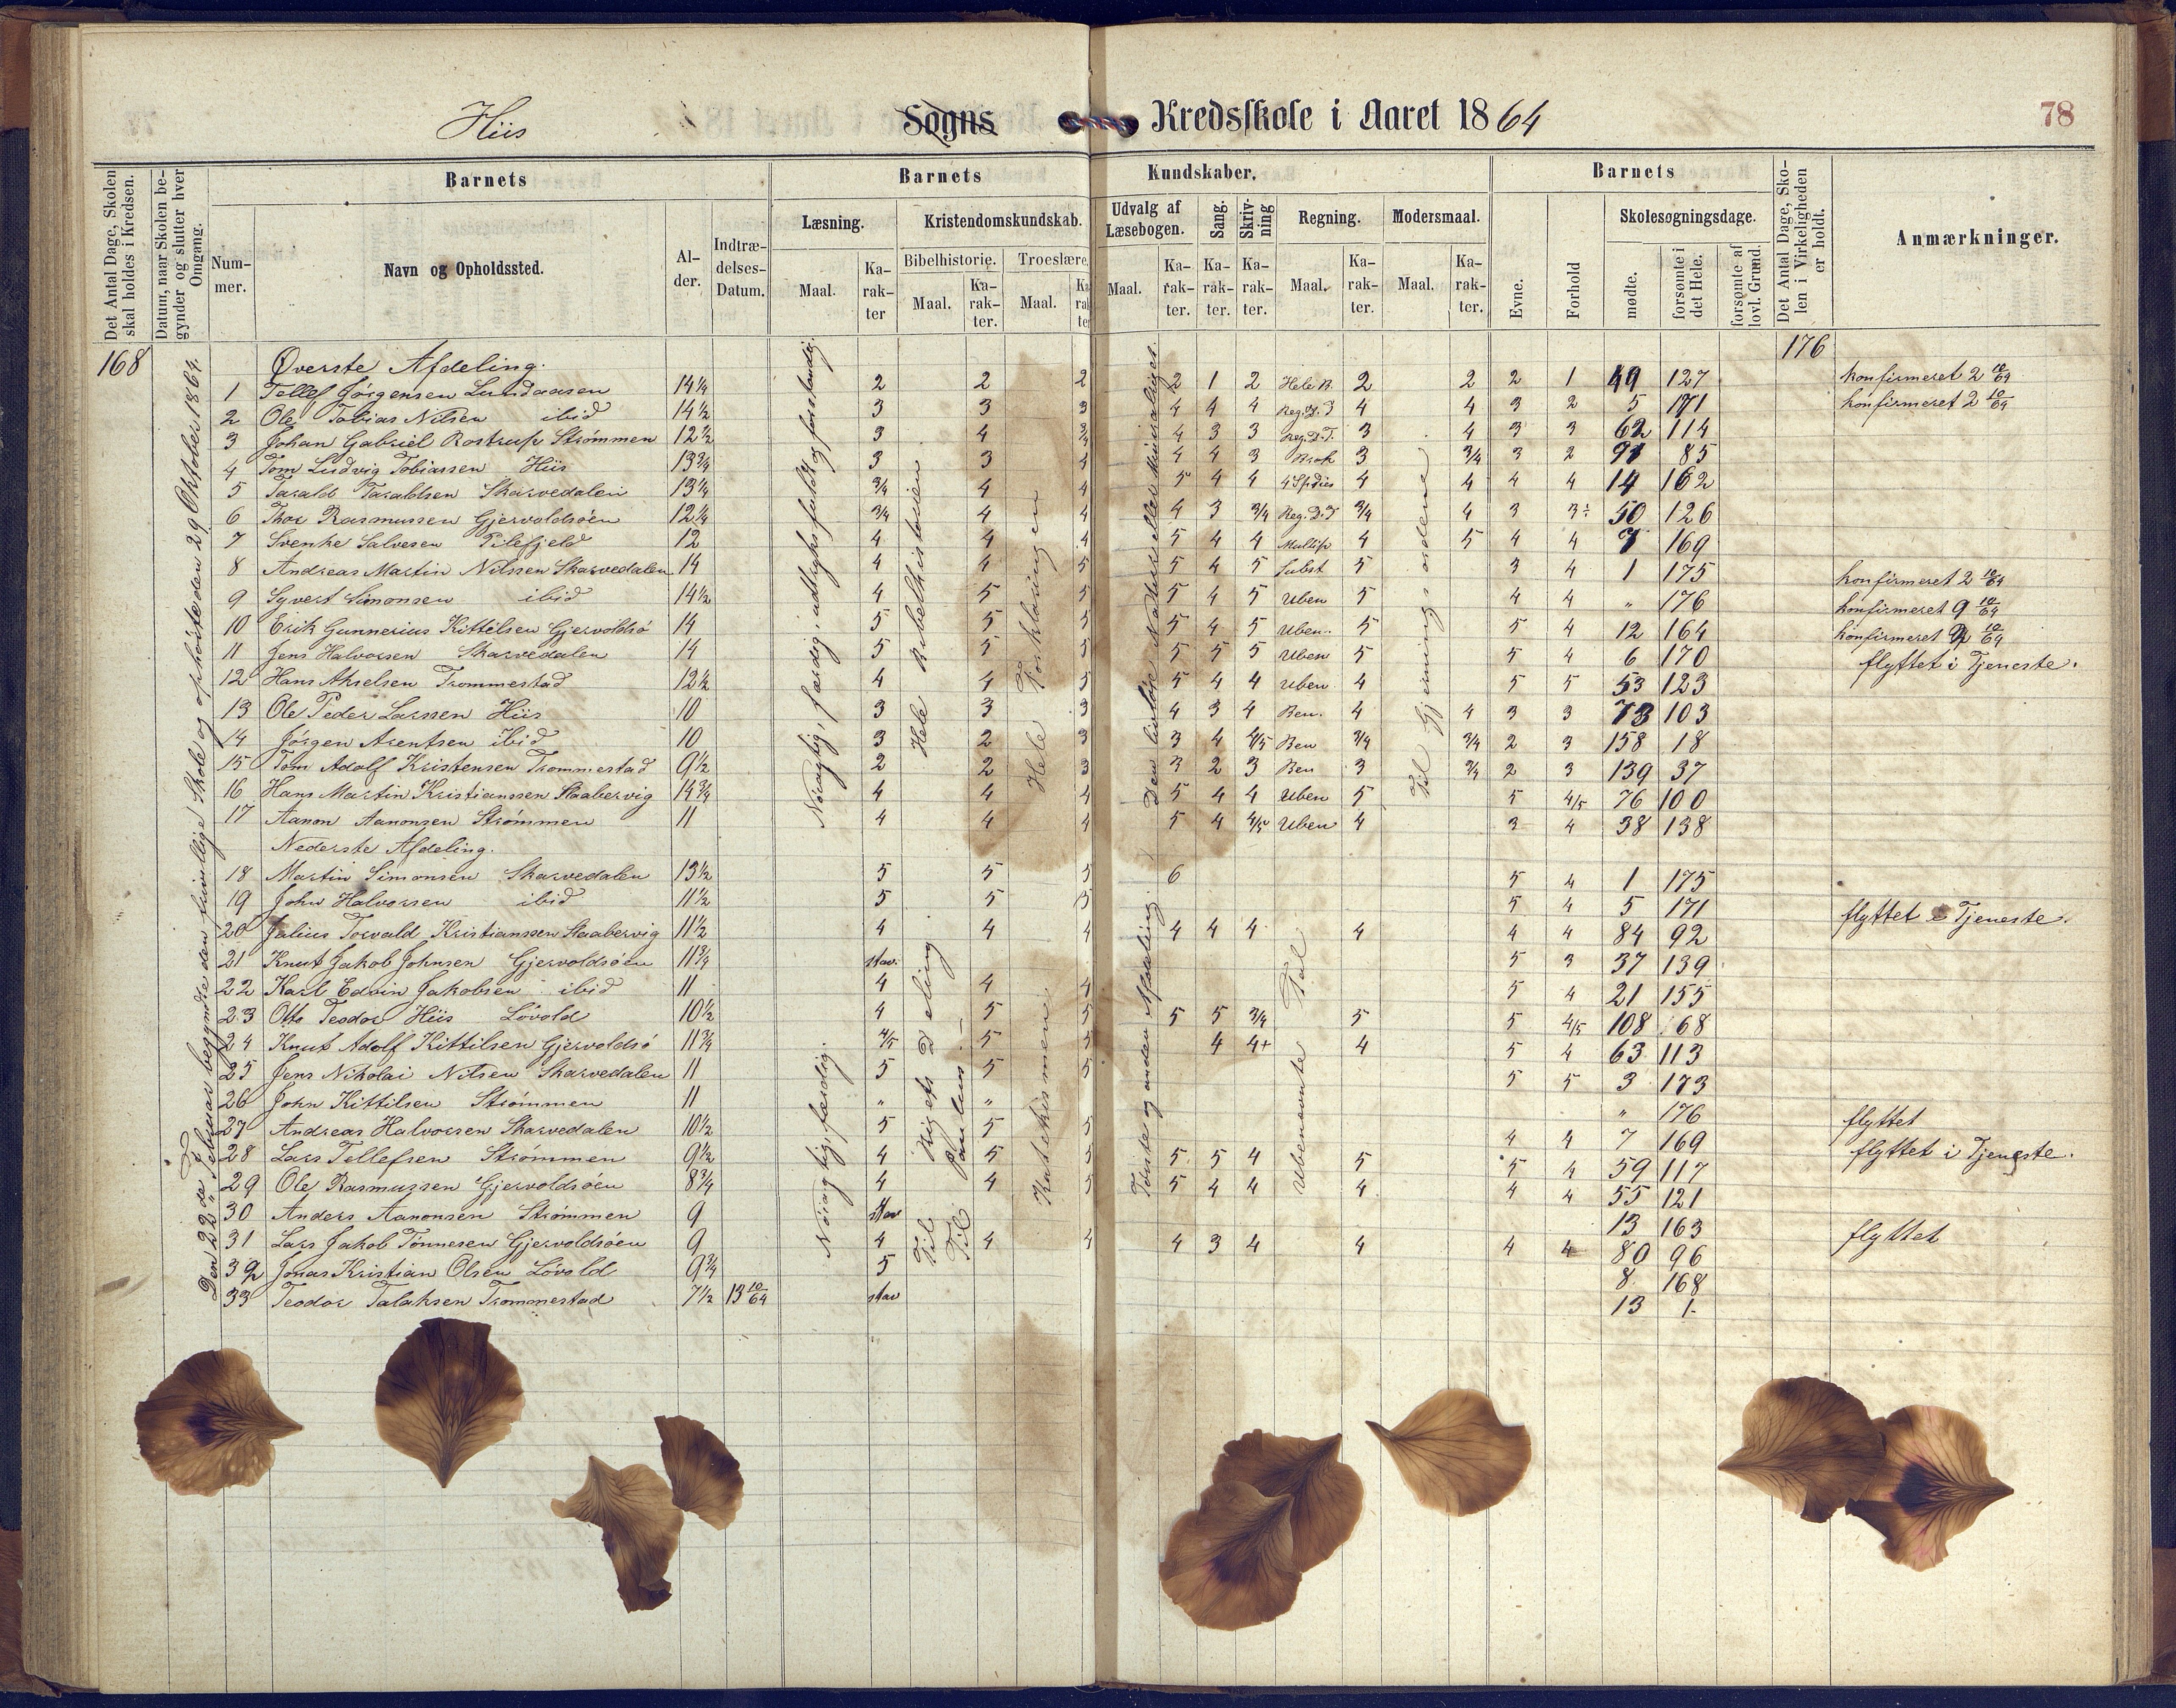 Hiis Sogns Kredsskole i Aaret 1864 78
Det Antal Dage, Skolen skal holdes i Kredsen.
Datum, naar Skolen begynder og slutter hver Omgang.
Barnets
Nummer.
Navn og Opholdssted.
Alder.
Indtrædelses-Datum.
Barnets Kundskaber.
Læsning.
Maal.
Karakter
Kristendomskundskab.
Bibelhistorie.
Maal.
Karakter.
Troeslære.
Maal.
Karakter
Udvalg af Læsebogen.
Maal.
Karakter.
Sang.
Karakter.
Skrivning
Karakter.
Regning.
Maal.
Karakter.
Modersmaal.
Maal.
Karakter.
Barnets
Evne.
Forhold
Skolesøgningsdage.
mødte.
forsømte i det Hele.
forsømte af lovl. Grund.
Det Antal Dage, Skolen i Virkeligheden er holdt.
Anmærkninger.
168
176
Den 22de Februar begyndte den frivillige Skole og ophørte den 29 Oktober 1864.
Nøiagtig, færdig, udtryksfuldt og forstandig.
Hele Bibelhistorien
Hele Forklaringen
Til Gjerningsordene
Øverste Afdeling.
1 Tellef Jørgensen Lundaasen 14¼ 2 2 2 2 1 2 Hele B. 2 2 2 1 49 127 konfirmeret 2 10/64
2 Ole Tobias Nilsen ibid 14½ 3 3 3 4 4 4 Reg. D. T 4 4 3 2 5 171 konfirmeret 2 10/64
3 Johan Gabriel Rostrup Strømmen 12½ 3 4 3/4 4 3 3 Reg. D. T. 3 4 3 3 62 114
4 Tom Ludvig Tobiassen Hiis 13¾ 3 3 4 4 4 3 Brok 3 3/4 3 2 91 85
5 Tarald Taraldsen Skarvedalen 13¼ 3/4 4 4 5 4 4 4 Spedies 4 4 4 4 14 162
6 Thor Rasmussen Gjervoldsøen 12¼ 3/4 4 4 4 3 3/4 Reg. D. T 3/4 4 3 3÷ 50 126
7 Svenke Salvesen Pilefjeld 12 4 4 4 5 4 4 Multip 4 5 4 4 7 169
8 Andreas Martin Nilssen Skarvedalen 14 4 4 5 5 4 5 Subst 5 3 4 1 175 konfirmeret 2 10/64
9 Syvert Simonsen ibid 14½ 4 5 5 5 4 5 Uben 5 4 4 " 176 konfirmeret 9 10/64
10 Erik Gunnerius Kittelsen Gjervoldsø 14 5 5 5 5 4 5 Uben. 5 5 4 12 164 konfirmeret 2 10/64
11 Jens Halvorsen Skarvedalen 14 5 5 5 5 5 5 Uben 5 5 4 6 170 flyttet i Tjeneste.
12 Hans Akselsen Trommestad 12½ 4 4 5 5 4 4 Uben 4 5 5 53 123
13 Ole Peder Larssen Hiis 10 3 3 3 4 3 4 Ben. 4 4 3 3 73 103
14 Jørgen Arentsen ibid 10 3 2 3 3 4 4/5 Ben 3/4 3/4 2 3 158 18
15 Tom Adolf Kristensen Trommestad 9½ 2 2 3 3 2 3 Ben 3 3/4 2 3 139 37
16 Hans Martin Kristianssen Staabervig 14¾ 4 4 4 5 4 4 Uben 5 5 4/5 76 100
17 Aanon Aanonsen Strømmen 11 4 4 4 5 4 4/5 Uben 4 3 4 38 138
Nederste Afdeling.
Nøiagtig, færdig.
Til Rigets Deling
Til Paulus
Katekismen.
Første og anden Afdeling.
Ubenævnte Tal
18 Martin Simonsen Skarvedalen 13½ 5 5 5 6 5 4 1 175
19 John Halvorsen ibid 11½ 5 5 5 5 4 5 171 flyttet i Tjeneste.
20 Julius Torvald Kristianssen Staabervig 11½ 4 4 4 4 4 4 4 4 4 84 92
21 Knut Jakob Johnsen Gjervoldsøen 11¾ stav. 5 3 37 139
22 Karl Edvin Jakobsen ibid 11 4 4 4 5 4 21 155
23 Otto Teodor Hiis Løvold 10½ 4 5 5 5 5 3/4 5 5 4/5 108 68
24 Knut Adolf Kittilsen Gjervoldsø 11¾ 4/5 5 5 4 4+ 4 5 4 63 113
25 Jens Nikolai Nilsen Skarvedalen 11 5 5 5 5 5 3 173
26 John Kittilsen Strømmen 11 " " " 176 flyttet
27 Andreas Halvorsen Skarvedalen 10½ 5 5 5 4 4 7 169 flyttet i Tjeneste.
28 Lars Tellefsen Strømmen 9½ 4 5 5 5 5 4 5 5 4 59 117
29 Ole Rasmussen Gjervoldsøen 8¾ 4 4 5 5 4 4 4 4 4 55 121
30 Anders Aanonsen Strømmen 9 stav 13 163 flyttet
31 Lars Jakob Tønnesen Gjervoldsøen 9 4 4 4 4 3 4 4 4 4 80 96
32 Jonas Kristian Olsen Løvold 9¾ 5 8 168
33 Teodor Talaksen Trommestad 7½ 13 10/64 stav 13 1